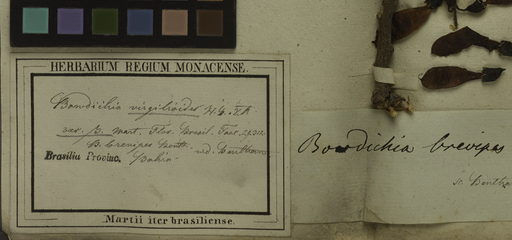 HERBARIUM REGIUM MONACENSE.
Bowdichia virgilioides H.B.K.
var. β. Mart. Flor. Brasil. Fasc.
B. brevipes Benth.
Brasilia Provinc. Bahia.
Martii iter brasiliense.
Bowdichia brevipes